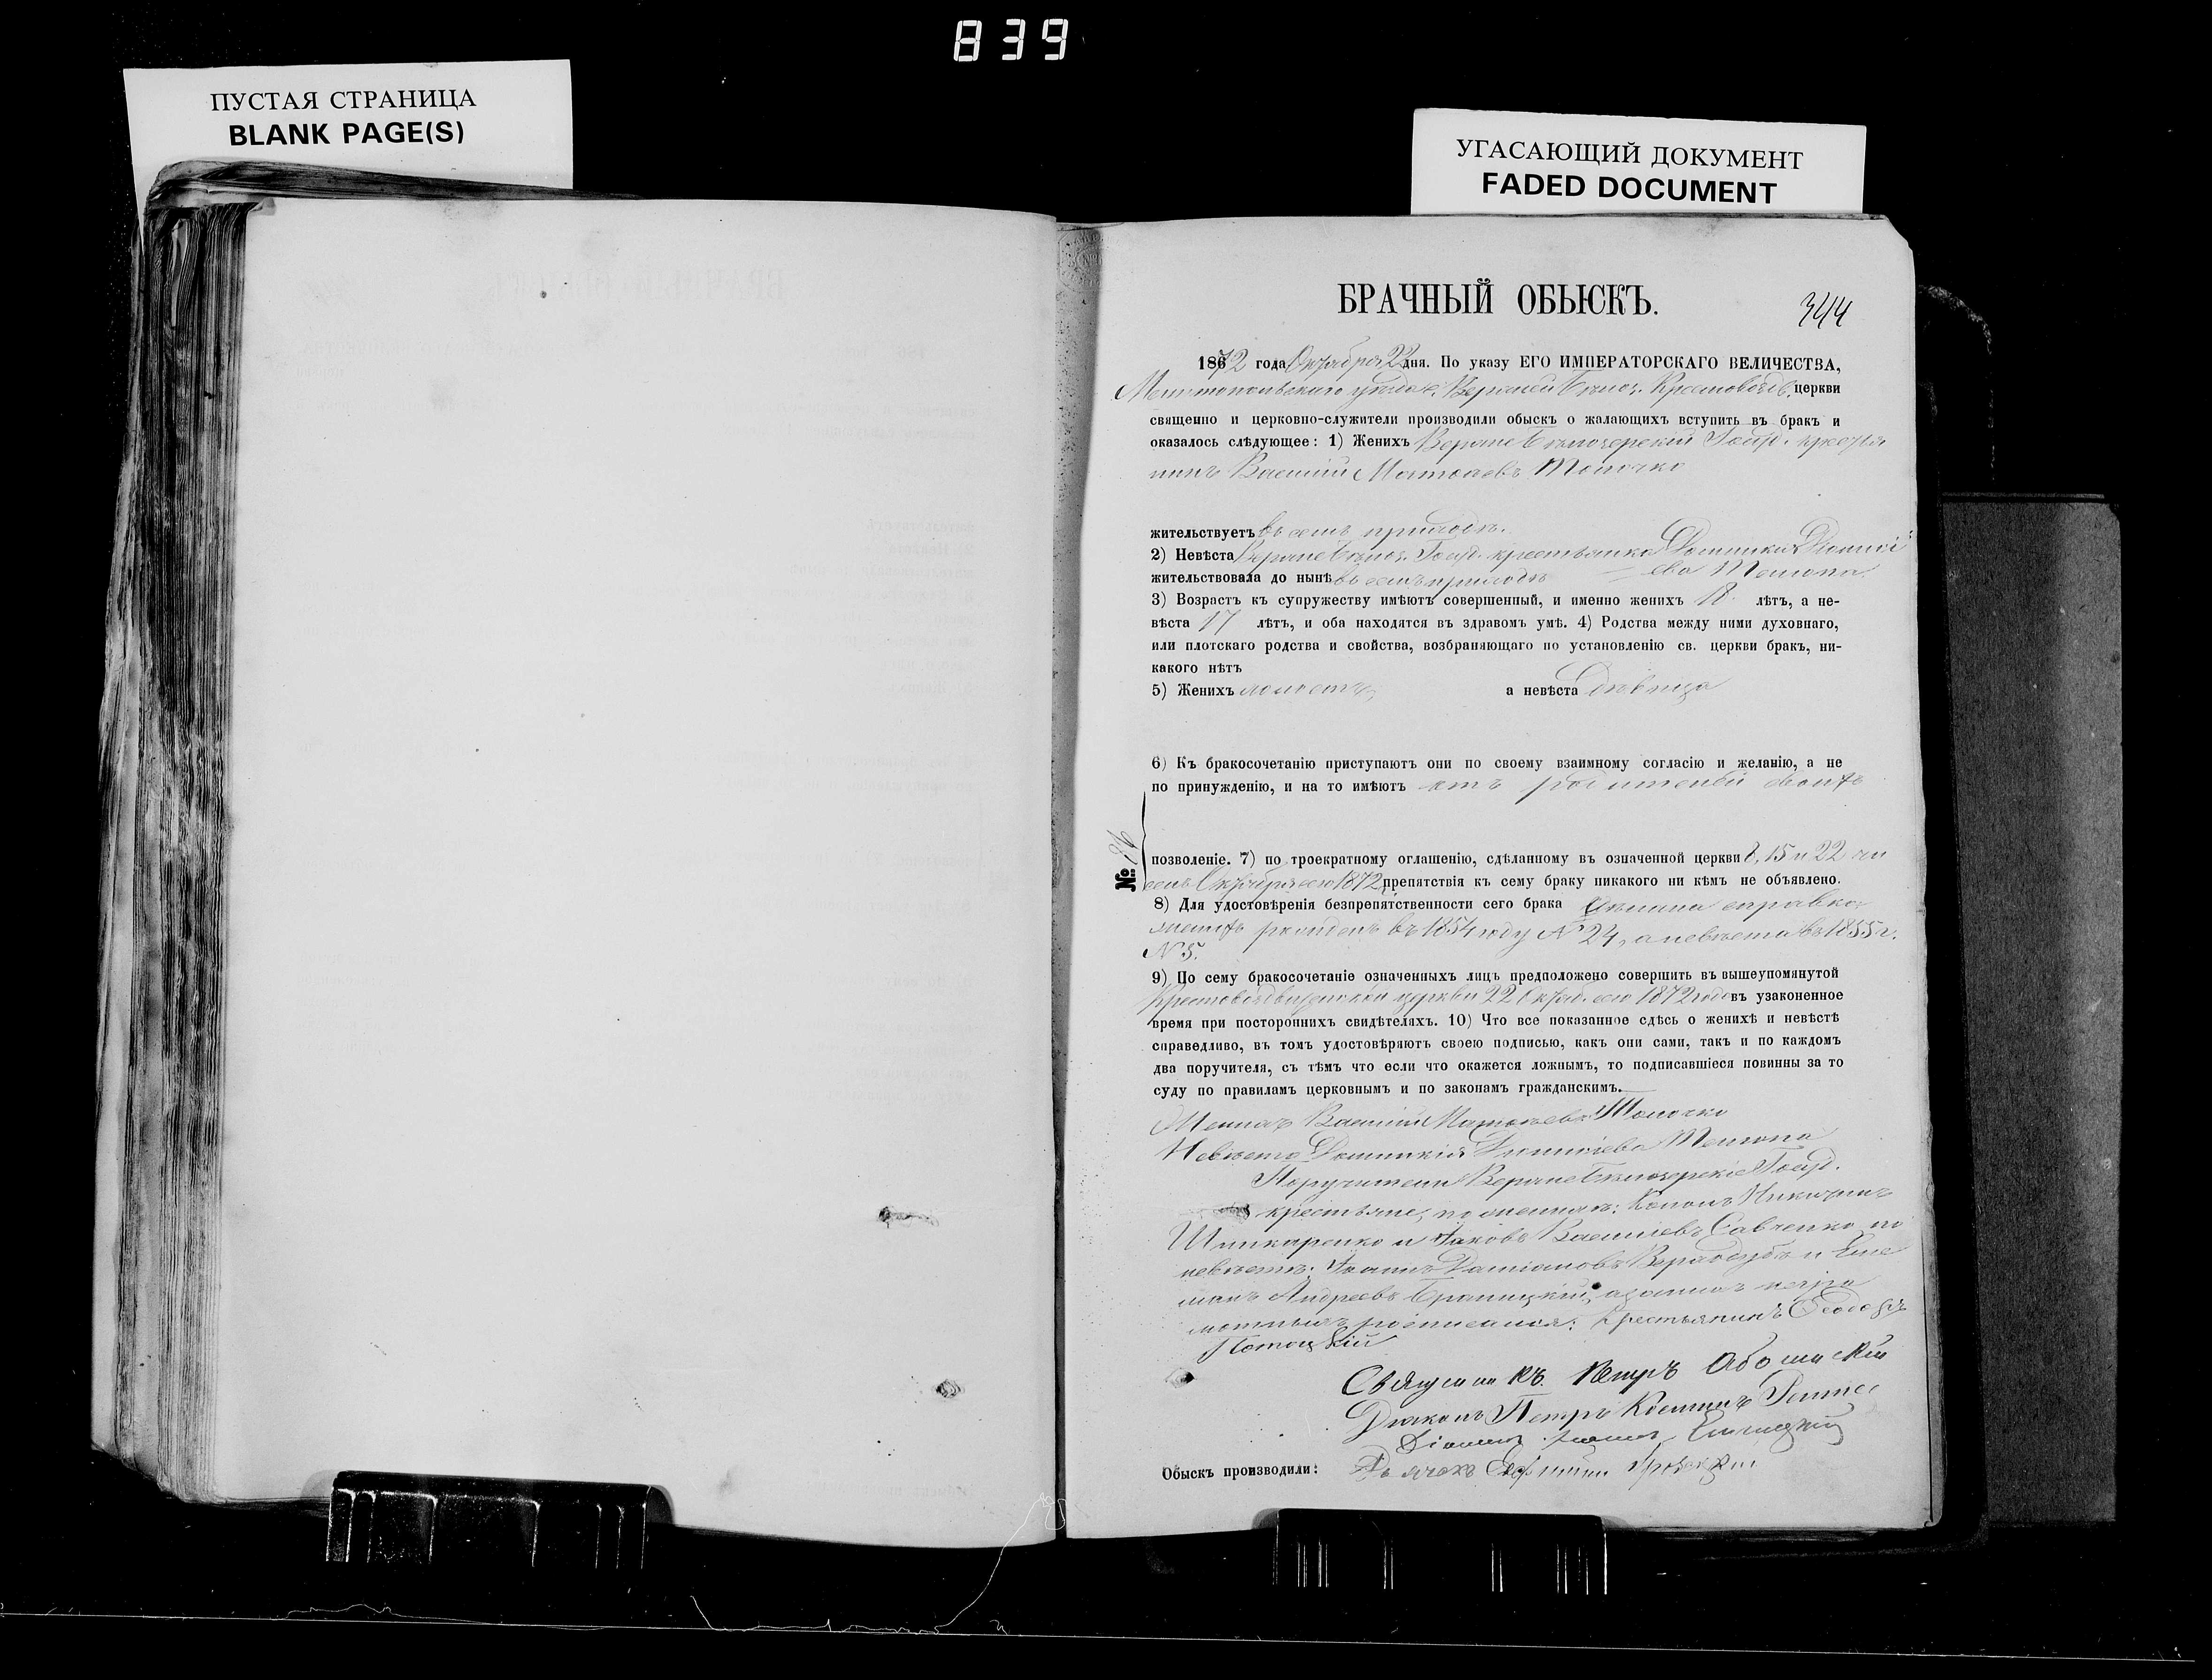 839
ПУСТАЯ СТРАНИЦА
BLANK PAGE(S)
УГАСАЮЩИЙ ДОКУМЕНТ
FADED DOCUMENT
БРАЧНЫЙ ОБЫСКЪ.
344
1872 года Октября 22 дня. По указу ЕГО ИМПЕРАТОРСКАГО ВЕЛИЧЕСТВА,
Мелитопольскаго уѣзда, Верхней Бѣлоз. Крестовозд. церкви
священно и церковно-служители производили обыскъ о жалающихъ вступить въ бракъ и
оказалось слѣдующее: 1) Женихъ Верхне Бѣлозерскій Госуд. крестья
нинъ Василій Матѳеевъ Толочко
жительствуетъ въ семъ приходѣ.
2) Невѣста Верхне Бѣлоз. Госуд. крестьянка
жительствовала до нынѣ въ семъ приходѣ
3) Возрастъ къ супружеству имѣютъ совершенный, и именно женихъ 18 лѣтъ, а не-
вѣста 17 лѣтъ, и оба находятся въ здравомъ умѣ. 4) Родства между ними духовнаго,
или плотскаго родства и свойства, возбраняющаго по установленію св. церкви бракъ, ни-
какого нѣтъ
5) Женихъ холостъ, а невѣста дѣвица
6) Къ бракосочетанію приступаютъ они по своему взаимному согласію и желанію, а не
по принужденію, и на то имѣютъ отъ родителей своихъ
№
позволеніе. 7) по троекратному оглашенію, сдѣланному въ означенной церкви 8, 15 и 22 чи
селъ Октября сего 1872 препятствія къ сему браку никакого ни кѣмъ не объявлено.
8) Для удостовѣренія безпрепятственности сего брака справка
женихъ рожденъ въ 1854 году № 24, а невѣста въ 1855 г.
№ 5.
9) По сему бракосочетаніе означенныхъ лицъ предположено совершить въ вышеупомянутой
Крестовоздвиженской церкви 22 Октяб. сего 1872 года въ узаконенное
время при постороннихъ свидѣтеляхъ. 10) Что все показанное сдѣсь о женихѣ и невѣстѣ
справедливо, въ томъ удостовѣряютъ своею подписью, какъ они сами, такъ и по каждомъ
два поручителя, съ тѣмъ что если что окажется ложнымъ, то подписавшіеся повинны за то
суду по правиламъ церковнымъ и по законамъ гражданскимъ.
Женихъ Василій Матѳеевъ Толочко
Невѣста
Поручители Верхне Бѣлозерскіе Госуд.
крестьяне, по женихѣ: Кононъ Никитинъ
Шинкаренко и Іаковъ Васильевъ Савченко, по
невѣстѣ: Іоаннъ Даміановъ и Еме
льянъ Андреевъ Браницкій, а за нихъ негра
мотныхъ росписался: Крестьянинъ Ѳеодоръ
Потоцкій
Священникъ Петръ
Діаконъ Петръ
Обыскъ производили: Дьячекъ Евфимій